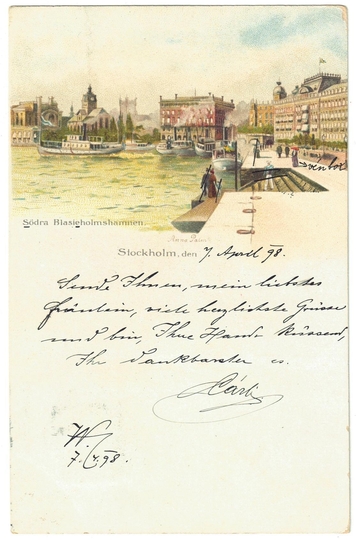 Södra Blasieholmshamnen.
Stockholm, den 7. April 98.
Sende Ihnen, mein liebstes
Fräulein, viele herzlichste Grüsse
und bin, Ihre Hand küssend,
Ihr dankbarster
W.
7./4.98.